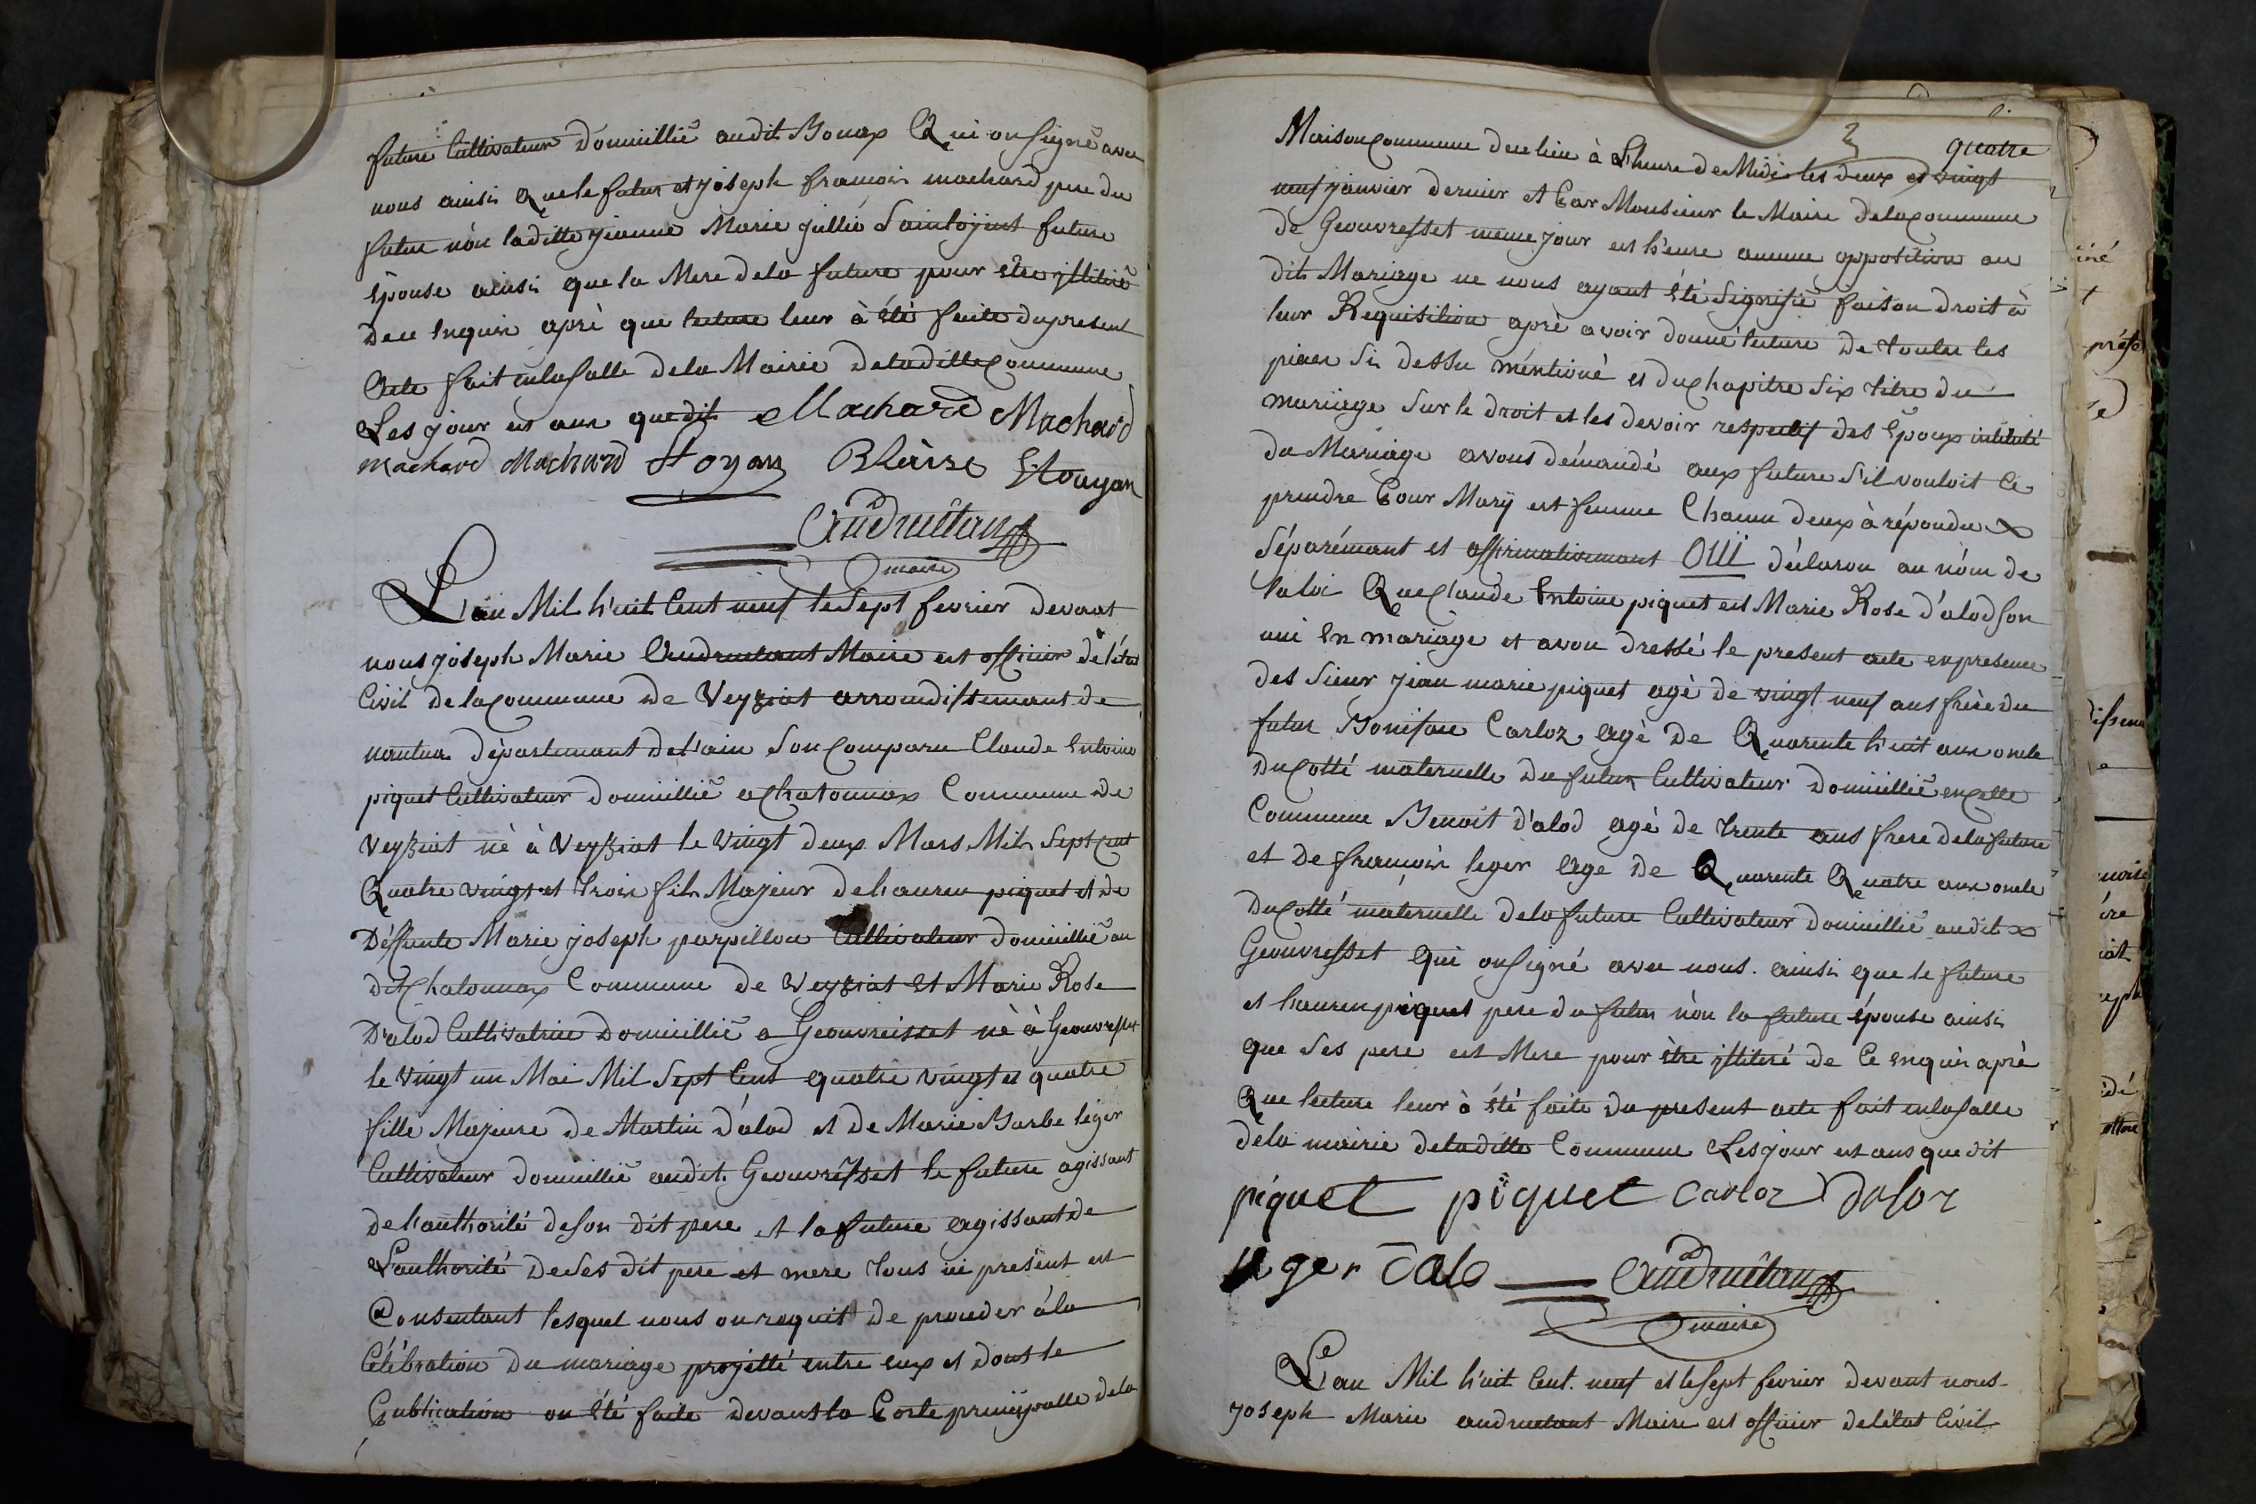 future Cultivateur domicillié audit Bouax Qui on signé avec
nous ainsi Que le futur et joseph francois machard pere du
futur nón laditte jeanne Marie jullié Saintoyent future
épouse ainsi que la Mere de la future pour être jlliteré
de ce enquis aprè que lecture leur à été faite du present
Acte fait en la salle de la Mairie de la ditte Commune
Les jour et ans que dit Machard Machard
machard Machard Stoyan Blaise Stouyan
Andruétan
maire
L'an Mil h'uit Cent neuf le Sept fevrier devant
nous joseph Marie Andruetant Maire est officier de l'état
Civil de la Commune de Veyziat arrondissemant de
nantua départemant de l'ain Son Comparu Claude Entoine
piquet Cultivateur domicillié a Chatonnax Commune de
Veyziat né à Veyziat le vingt deux Mars Mil Sept Cent
Quatre vingt et trois fils Majeur de hauren piquet et de
Déffunte Marie joseph parpillon Cultivateur domicillié au
dit Chatonnax Commune de Veyziat Et Marie Rose
D'alod Cultivatrice Domicillié a Geouvreisset né à Geouvresset
le vingt un Mai Mil Sept Cent quatre vingt et quatre
fille Majeure de Martin d'alod et de Marie Barbe léger
Cultivateur domicillié audit Geouvrésset le future agissant
de l'authorité de son dit pere et la future agissant de
L'authorité de Ses dit pere et mere tous ici present est
Consentant lesquel nous on requit de proceder à la
Célébration du mariage projetté entre eux et dont le
Publication on été faite devant la Porte principalle de la
quatre
Maison Commune de ce lieu à L'heure de Midi les deux et vingt
neuf janvier dernier et Par Monsieur le Maire de la Commune
de Geouvresset meme jour est h'eure aucune opposition au
dit Mariage ne nous ayant été Signifié faison droit à
leur Requisition aprè avoir donné lecture De toutes les
pieces Si dessu méntioné et du Chapitre Six titre du
mariage Sur le droit et les devoir respectif des Epoux intitulé
du Mariage avons démandé aux future S'il vouloit Ce
prendre Pour Mary est femme Chacun deux à répondu
Séparémant et affirmativemant OUI déclaron au nóm de
la loi Que Claude Entoine piquet est Marie Rose d'alod son
uni En mariage et avon dressé le present acte en presence
des Sieur jean marie piquet agé de vingt neuf ans frère du
futur Boniface Carloz agé de Quarente h'uit ans oncle
du Cotté maternelle du futur Cultivateur domicillié en Cette
Commune Benoit d'alod agé de trente ans frere de la future
et de francois leger age de Quarente Quatre ans oncle
du Cotté máternelle de la future Cultivateur domicillié audit
Geouvresset Qui on signé avec nous. ainsi que le future
et haurenpiquet pere du futur nón la future épouse ainsi
que Ses pere est Mere pour être jlliteré de Ce enquis aprè
Que lecture leur à été faite du present acte fait en la Salle
de la mairie de la ditte Commune Les jour est ans que dit
piquet piquet Carloz
leger Andruétan
maire
L'an Mil h'uit Cent. neuf et le Sept fevrier devant nous
joseph Marie andruetant Maire est officier de l'état Civil